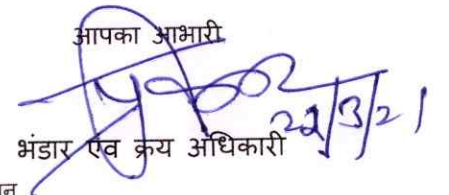 आपका आभारी
22/3/21
भंडार एंव क्रय अधिकारी